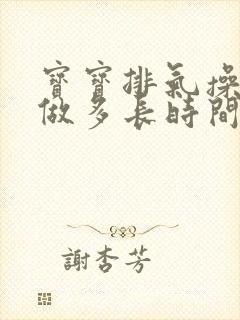 寶寶排氣操
做多長時間
謝杏芳